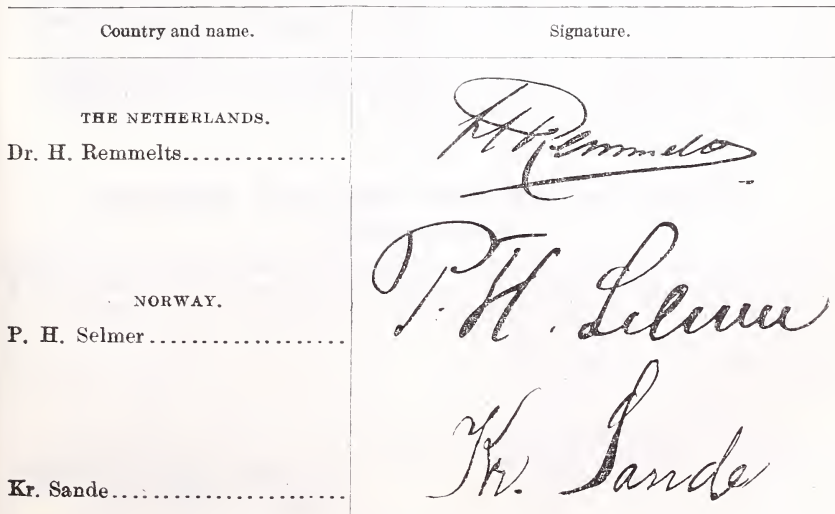 Country and name. Signature.
THE NETHERLANDS.
Dr. H. Remmelts................ HRemmelts
NORWAY.
P. H. Selmer................... P. H. Selmer
Kr. Sande....................... Kr. Sande